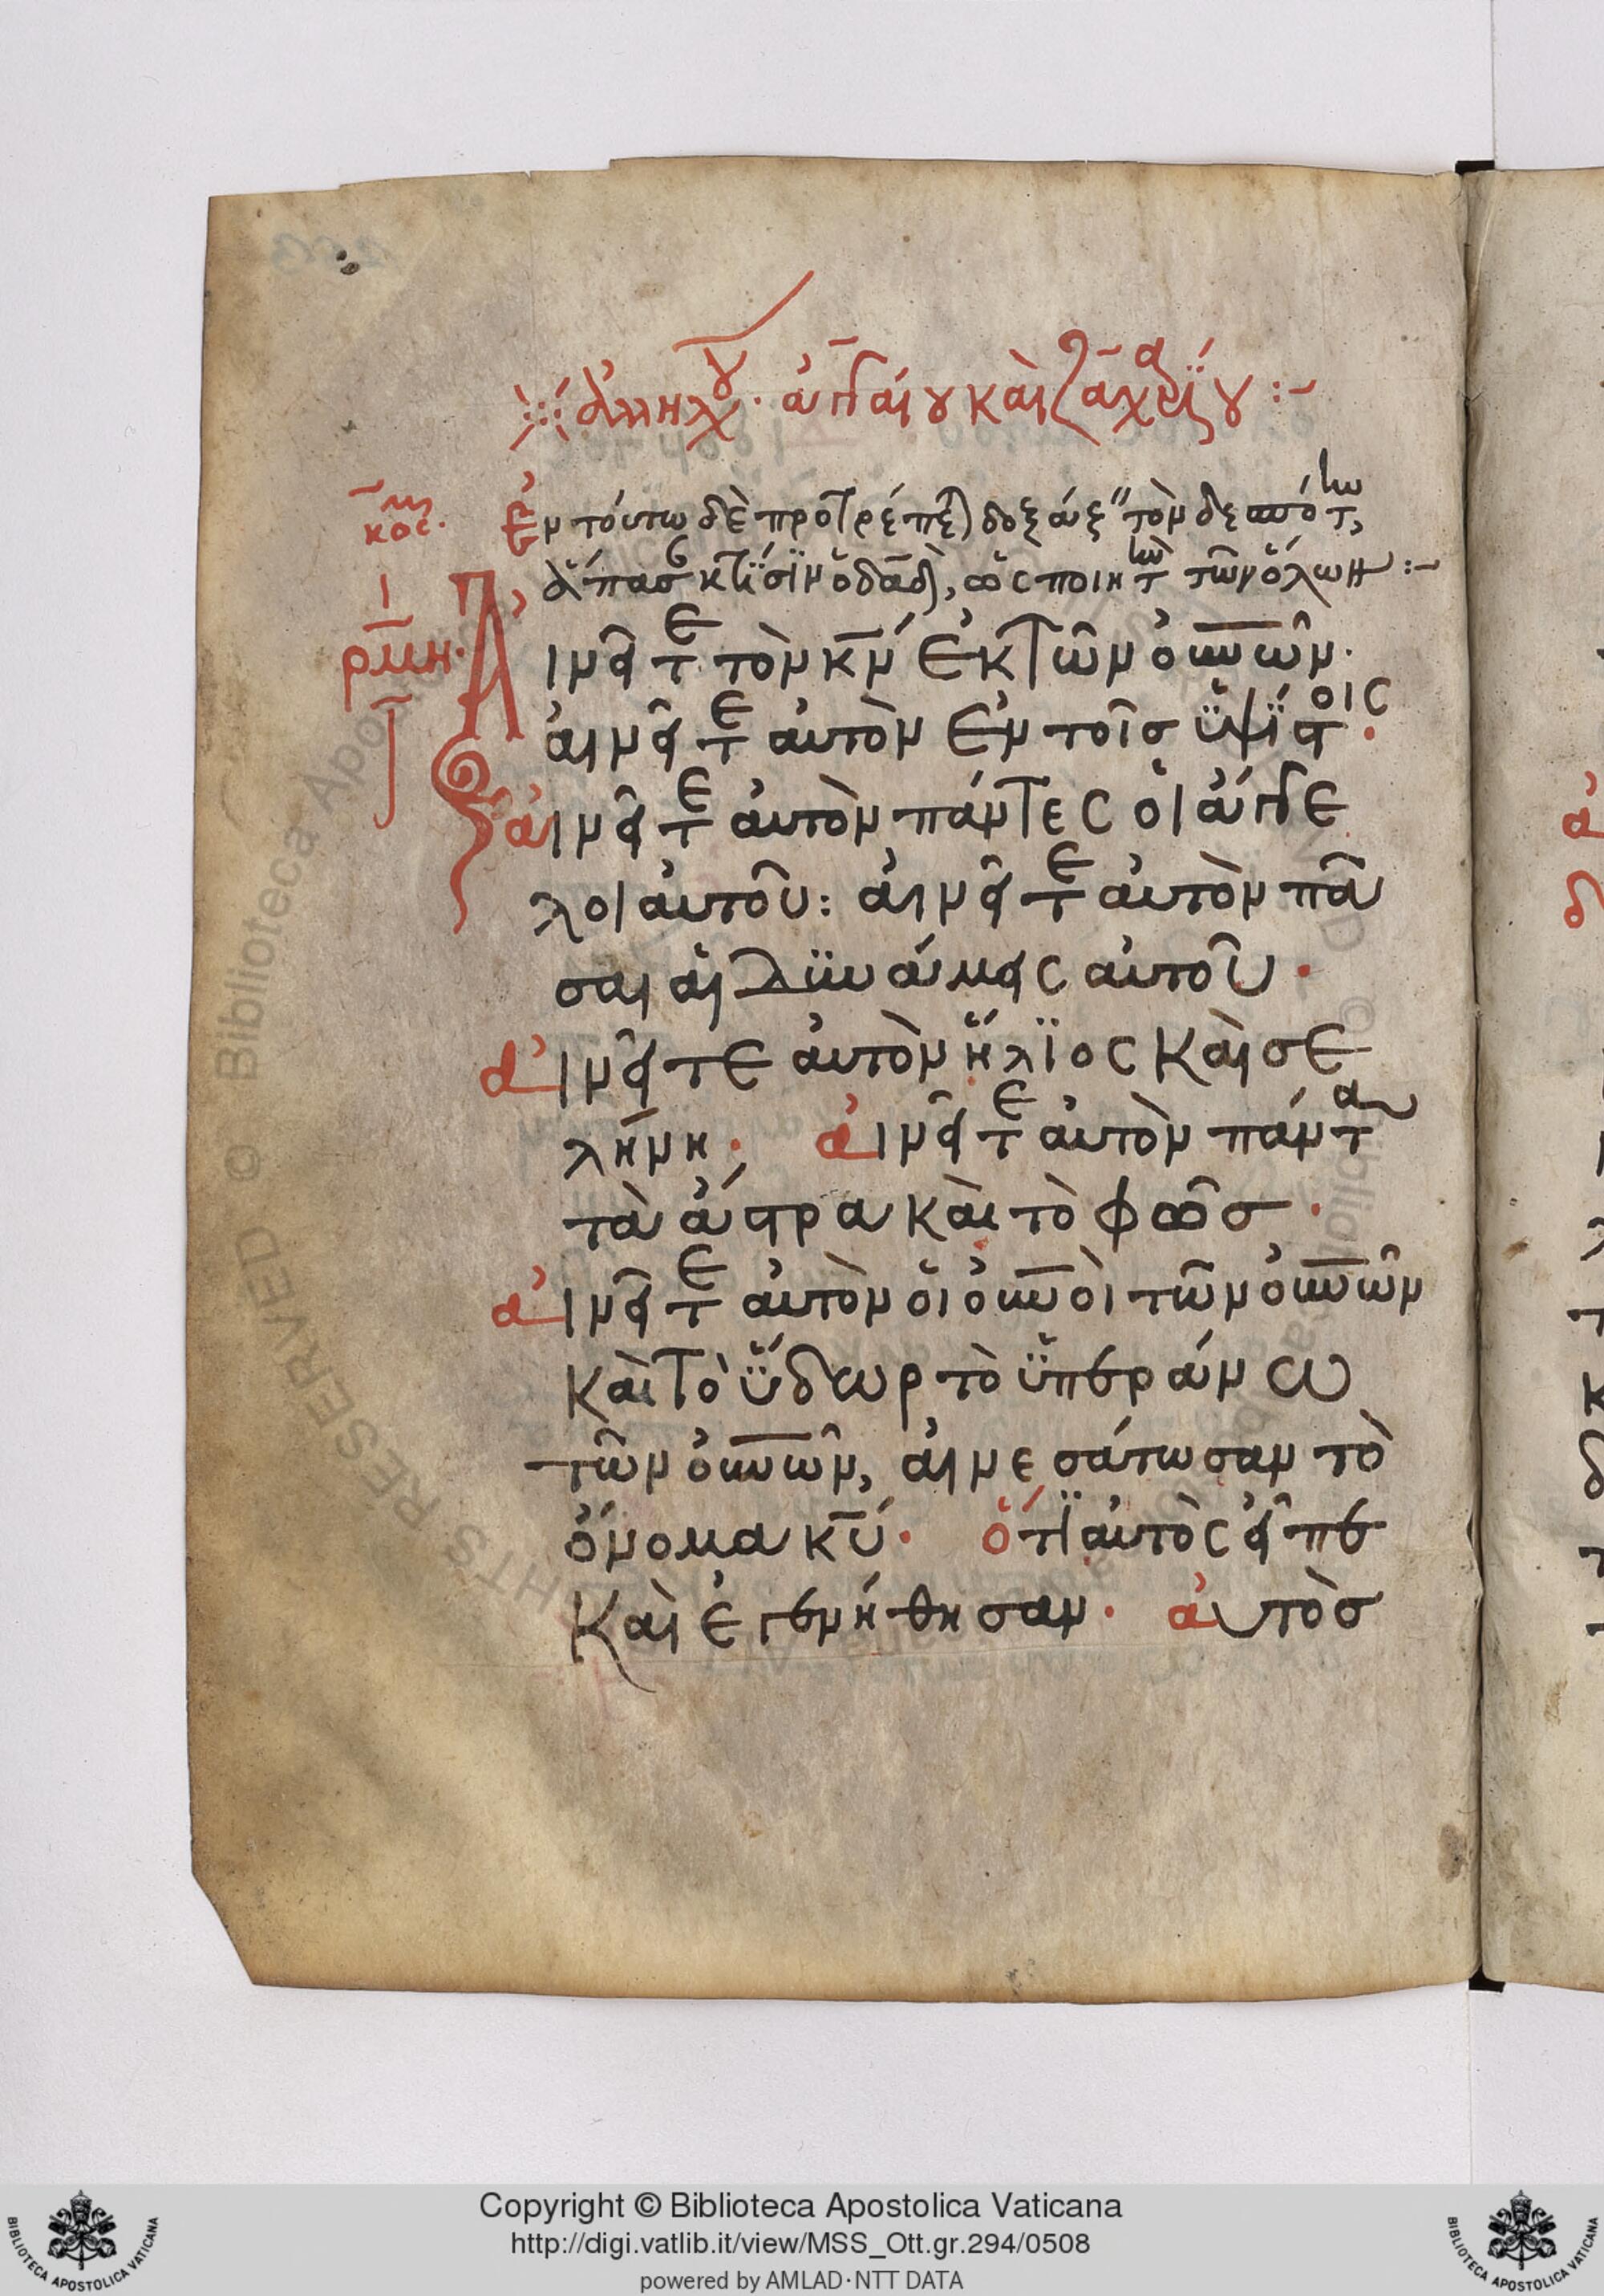 ἀλληλού. ἀγγαίου καὶ ζαχαρίου :-
κος. Ἐν τούτω δὲ προτρέπει δοξάζειν τὸν δεσπότην,
ἅπασαν κτίσιν ὁ δαδ, ὡς ποιητὴν τῶν ὅλων :-
ρμη. Αἰνεῖτε τὸν κν ἐκ τῶν οὐνῶν.
αἰνεῖτε αὐτὸν ἐν τοῖς ὑψίστοις.
αἰνεῖτε αὐτὸν πάντες οἱ ἄγγε
λοι αὐτοῦ: αἰνεῖτε αὐτὸν πᾶ
σαι αἱ δυνάμεις αὐτοῦ.
αἰνεῖτε αὐτὸν ἥλϊος καὶ σε
λήνη. αἰνεῖτε αὐτὸν πάντα
τὰ ἄστρα καὶ τὸ φῶς.
αἰνεῖτε αὐτὸν οἱ οὐνοὶ τῶν οὐνῶν
καὶ τὸ ὕδωρ τὸ ὑπεράνω
τῶν οὐνῶν, αἰνεσάτωσαν τὸ
ὄνομα κυ. ὅτι αὐτὸς εἶπε
καὶ ἐγενήθησαν. αὐτὸς
© Biblioteca Apostolica Vaticana
RIGHTS RESERVED
BIBLIOTECA APOSTOLICA VATICANA
Copyright © Biblioteca Apostolica Vaticana
http://digi.vatlib.it/view/MSS_Ott.gr.294/0508
powered by AMLAD·NTT DATA
BIBLIOTECA APOSTOLICA VATICANA